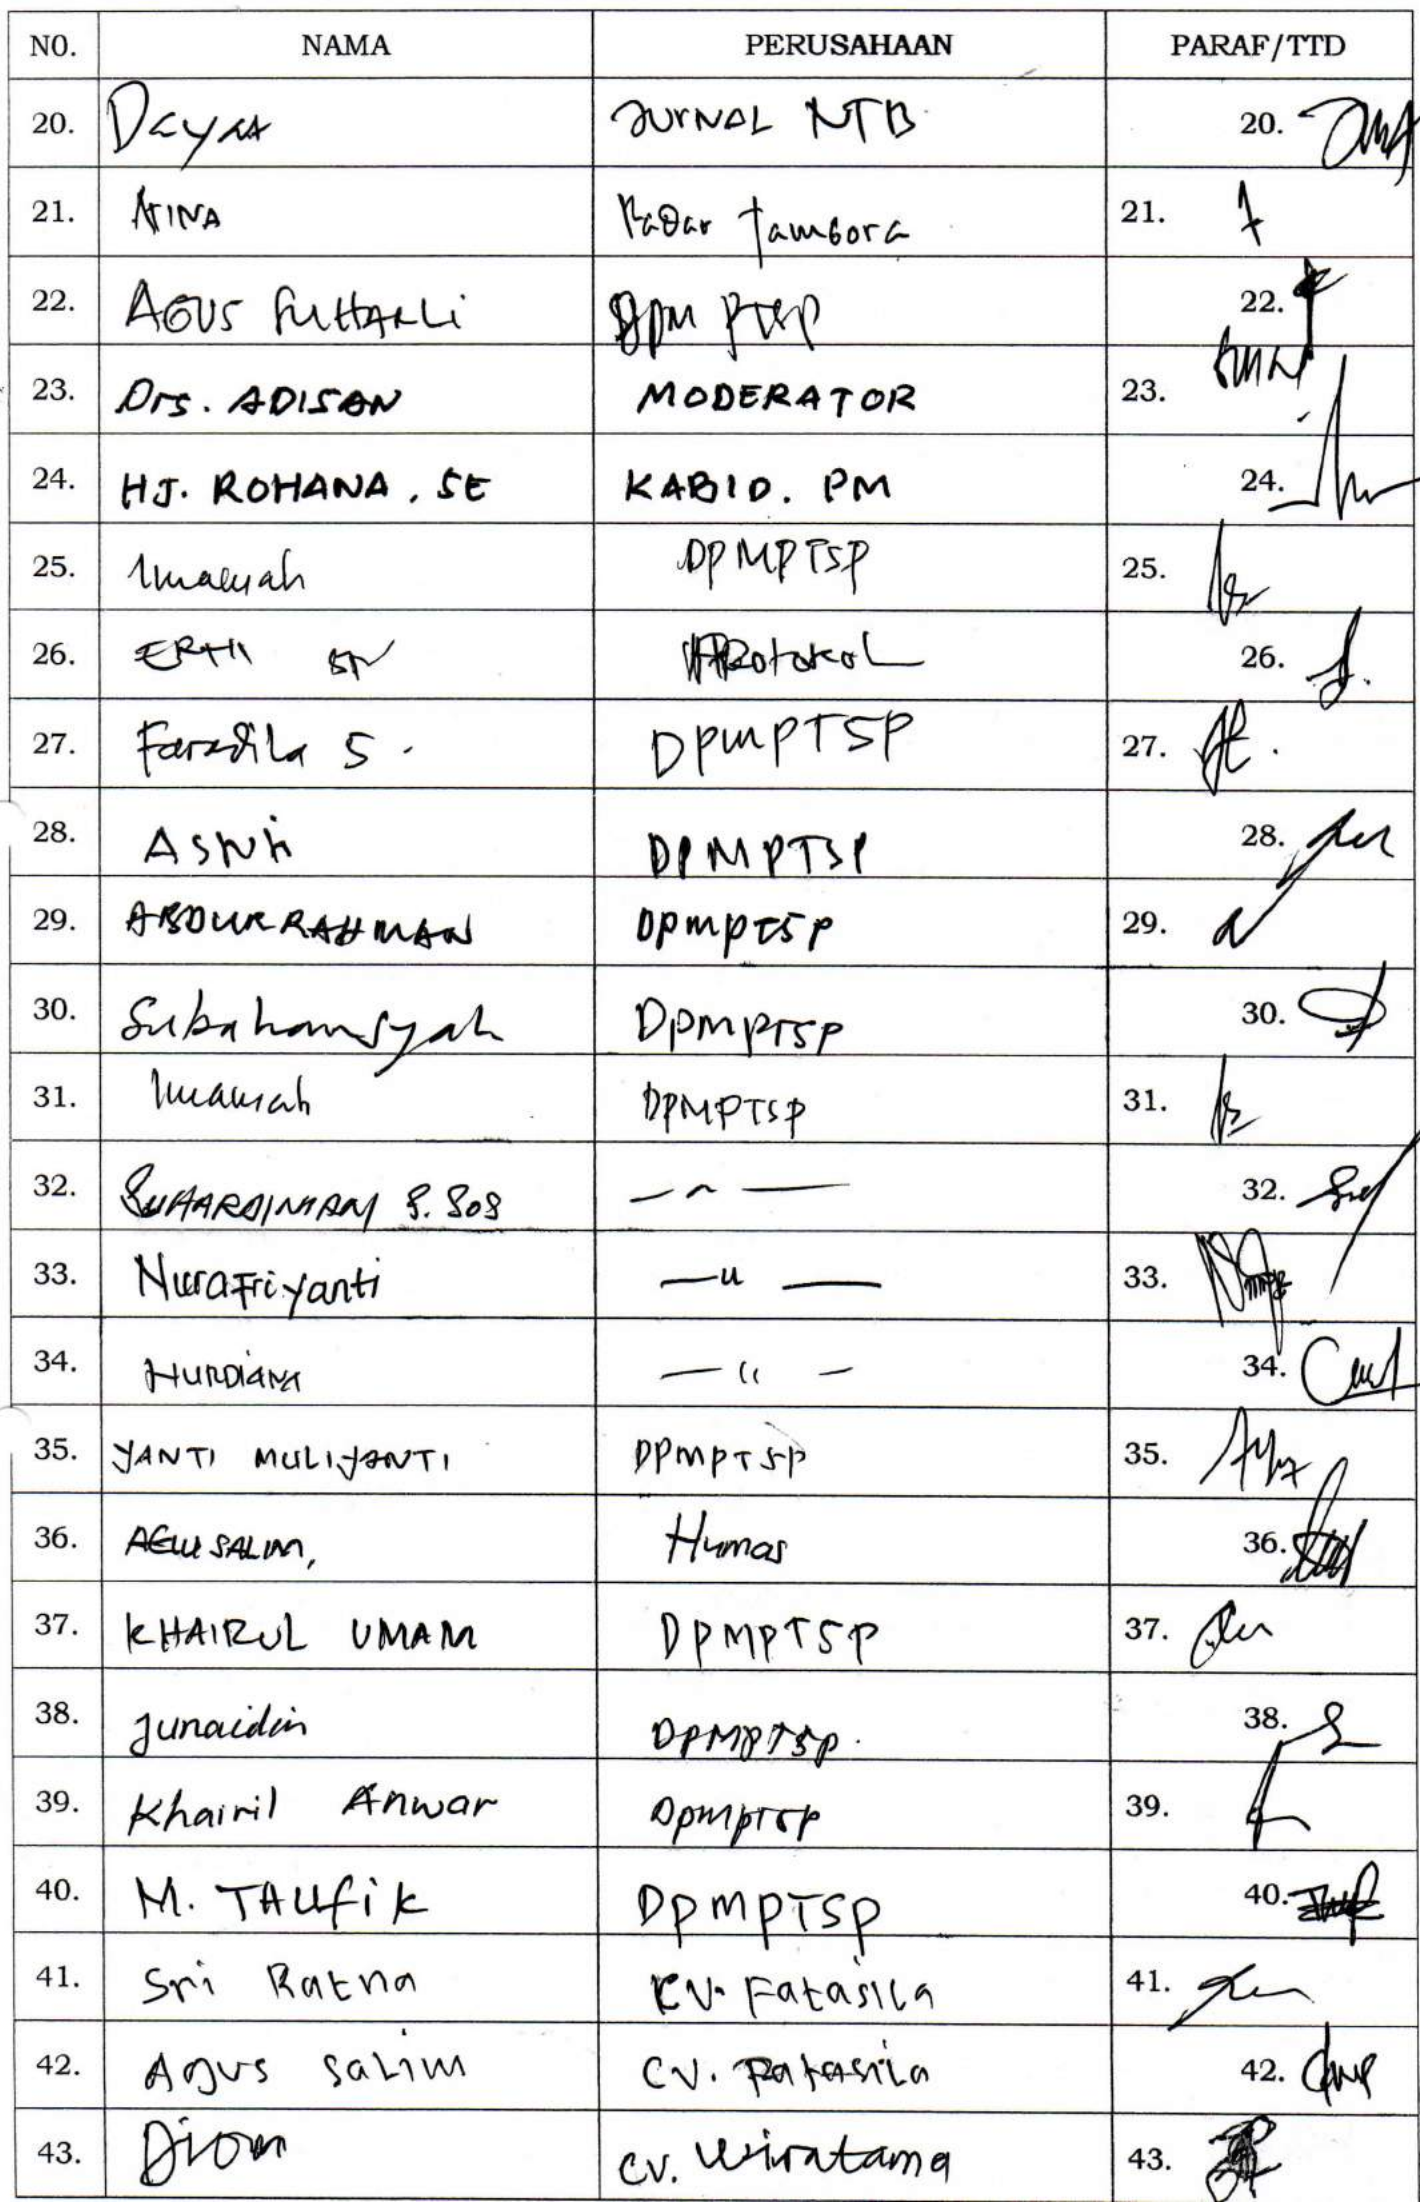 NO. NAMA PERUSAHAAN PARAF/TTD
20. Dayat JURNAL NTB 20.
21. AINA Radar Tambora 21.
22. AGUS SUHARLI DPM PTSP 22.
23. Drs. ADISAN MODERATOR 23.
24. HJ. ROHANA, SE KABID. PM 24.
25. DPMPTSP 25.
26. Protokol 26.
27. Faradila S. DPMPTSP 27.
28. DPMPTSP 28.
29. ABDURRAHMAN DPMPTSP 29.
30. Subahansyah DPMPTSP 30.
31. DPMPTSP 31.
32. SUHARDIMAN S.SOS — " — 32.
33. Nurafriyanti — " — 33.
34. NURDIANA — " — 34.
35. YANTI MULIYANTI DPMPTSP 35.
36. AGUSSALIM, Humas 36.
37. KHAIRUL UMAM DPMPTSP 37.
38. Junaidin DPMPTSP. 38.
39. Khairil Anwar DPMPTSP 39.
40. M. TAUFIK DPMPTSP 40.
41. Sri Ratna CV. Fatasila 41.
42. Agus Salim CV. Fatasila 42.
43. CV. Wiratama 43.